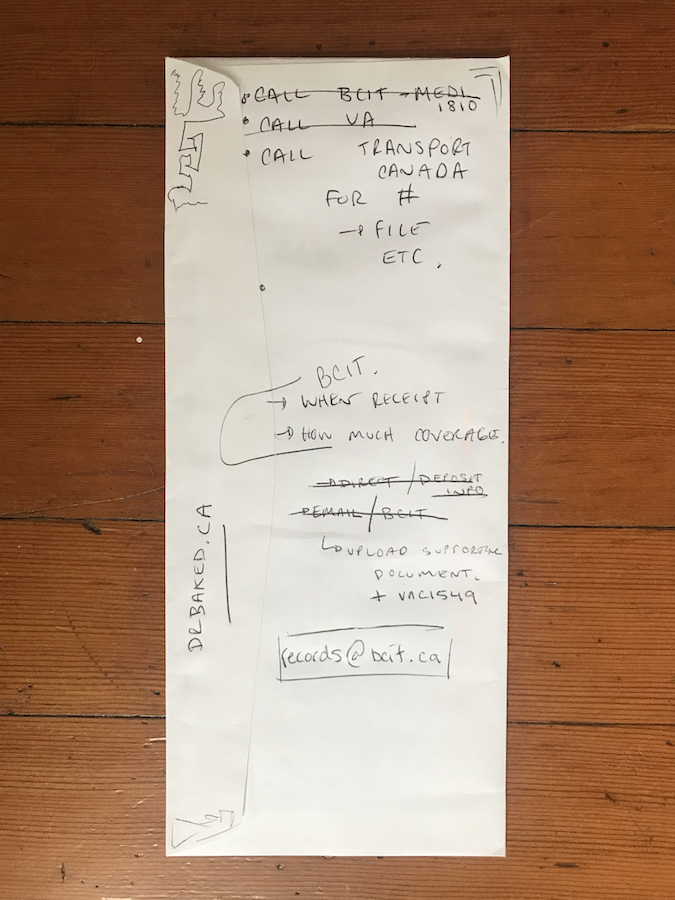 CALL BCIT - MEDI
1810
CALL VA
CALL TRANSPORT
CANADA
FOR #
→ FILE
ETC.
BCIT.
→ WHEN RECEIPT
→ HOW MUCH COVERAGE.
DIRECT / DEPOSIT
INFO
EMAIL / BCIT
↳ UPLOAD SUPPORTING
DOCUMENT.
+ VAC1549
records@bcit.ca
DRBAKED.CA